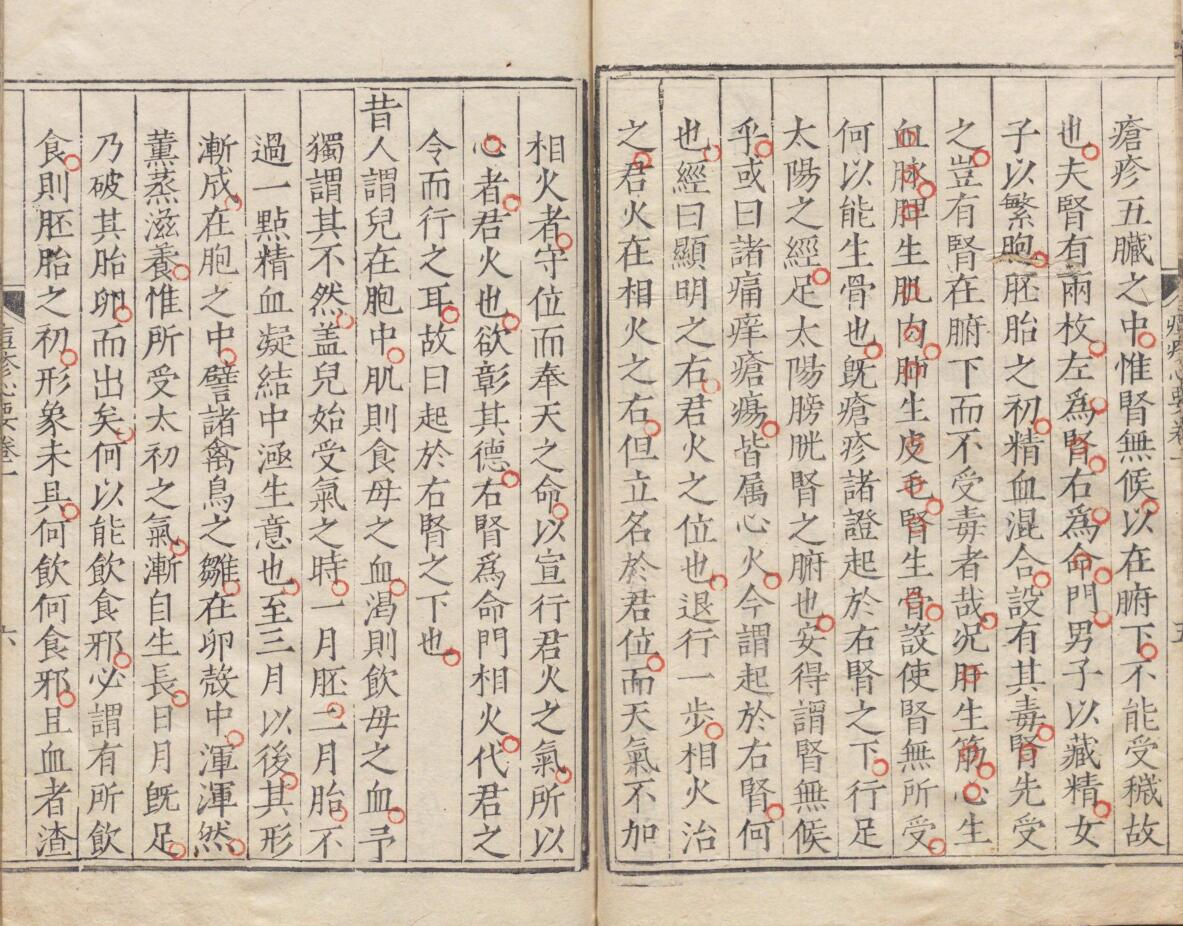 瘡疹五臟之中惟腎無候以在腑下不能受穢故
也夫腎有兩枚左爲腎右爲命門男子以藏精女
子以繫胞胚胎之初精血混合設有其毒腎先受
之豈有腎在腑下而不受毒者哉况肝生筋心生
血脉脾生肌肉肺生皮毛腎生骨設使腎無所受
何以能生骨也旣瘡疹諸證起於右腎之下行足
太陽之經足太陽膀胱腎之腑也安得謂腎無候
乎或曰諸痛痒瘡瘍皆属心火今謂起於右腎何
也經曰顯明之右君火之位也退行一步相火治
之君火在相火之右但立名於君位而天氣不加
相火者守位而奉天之命以宣行君火之氣所以
心者君火也欲彰其德右腎爲命門相火代君之
令而行之耳故曰起於右腎之下也
昔人謂兒在胞中肌則食母之血渴則飲母之血予
獨謂其不然盖兒始受氣之時一月胚二月胎不
過一點精血凝結中涵生意也至三月以後其形
漸成在胞之中譬諸禽鳥之雛在卵殼中渾渾然
薰蒸滋養惟所受太初之氣漸自生長日月旣足
乃破其胎卵而出矣何以能飲食邪必謂有所飲
食則胚胎之初形象未具何飲何食邪且血者渣
痘疹心要卷一
六